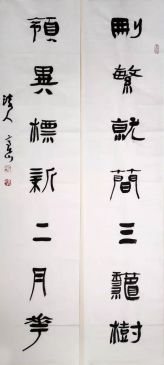 刪繁就簡三龝樹
領異標新二月華